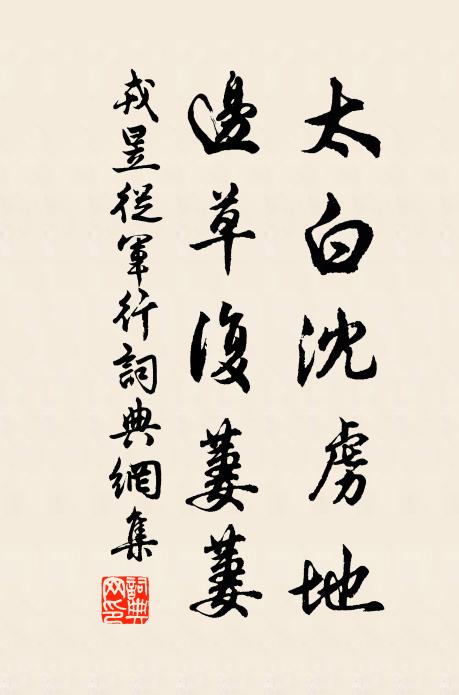 太白沈虜地
邊草復萋萋
戎昱從軍行詞典網集
詞典网印